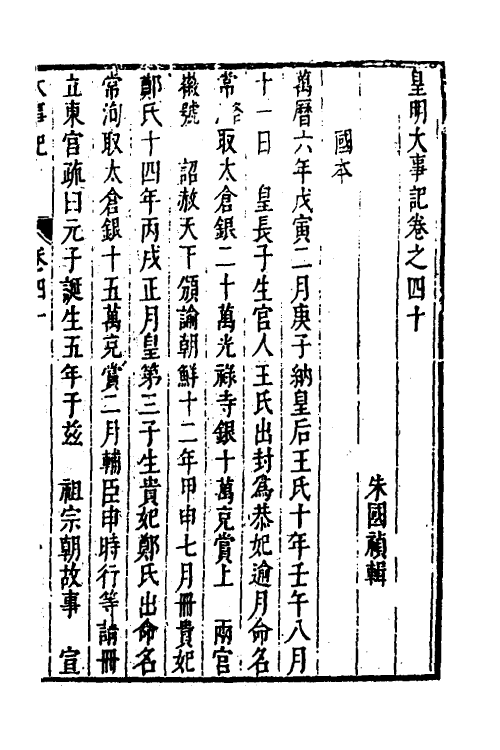 皇明大事記卷之四十
朱國禎輯
國本
萬曆六年戊寅二月庚子納皇后王氏十年壬午八月
十一日　皇長子生宮人王氏出封爲恭妃逾月命名
常洛取太倉銀二十萬光祿寺銀十萬充賞上　兩宮
徽號　詔赦天下頒諭朝鮮十二年甲申七月冊貴妃
鄭氏十四年丙戌正月皇第三子生貴妃鄭氏出命名
常洵取太倉銀十五萬充賞二月輔臣申時行等請冊
立東宮疏曰元子誕生五年于茲　祖宗朝故事　宣
大事記　卷四十